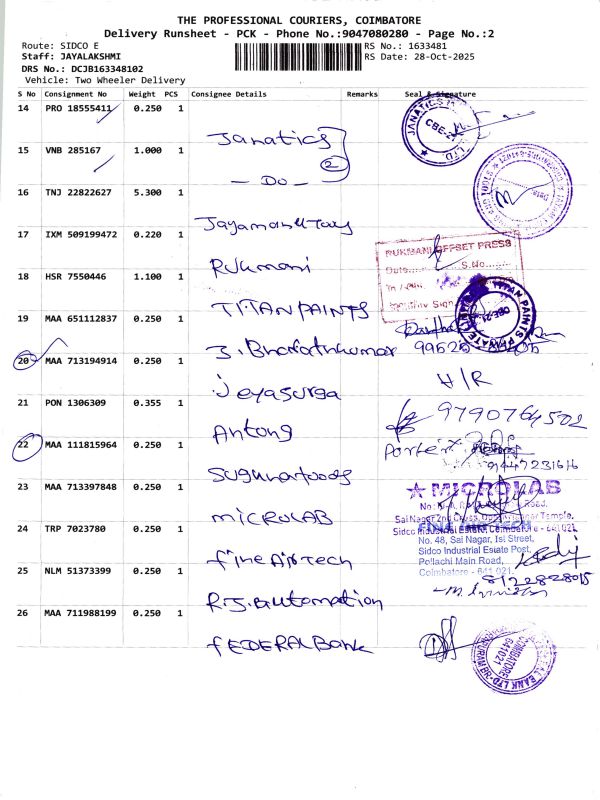 THE PROFESSIONAL COURIERS, COIMBATORE
Delivery Runsheet - PCK - Phone No.:9047080280 - Page No.:2
Route: SIDCO E
RS No.: 1633481
Staff: JAYALAKSHMI
RS Date: 28-Oct-2025
DRS No.: DCJB163348102
Vehicle: Two Wheeler Delivery
S No Consignment No Weight PCS Consignee Details Remarks Seal & Signature
14 PRO 18555411 0.250 1
Janatics
15 VNB 285167 1.000 1
2
- Do -
16 TNJ 22822627 5.300 1
17 IXM 509199472 0.220 1
RUKMANI OFFSET PRESS
Rukmani
S.No
18 HSR 7550446 1.100 1
TITAN PAINTS
19 MAA 651112837 0.250 1
J. Bharathkumar
20 MAA 713194914 0.250 1
H/R
Jeyasurya
21 PON 1306309 0.355 1
9790764502
Antony
22 MAA 111815964 0.250 1
Sugunafoods
23 MAA 713397848 0.250 1
MICROLAB
MICROLAB
24 TRP 7023780 0.250 1
FINE AIR TECH
No. 48, Sai Nagar, Ist Street,
Sidco Industrial Estate Post,
Pollachi Main Road,
Coimbatore - 641 021.
fine Air Tech
25 NLM 51373399 0.250 1
8122828015
R.J. automation
26 MAA 711988199 0.250 1
FEDERAL Bank
COIMBATORE
641021